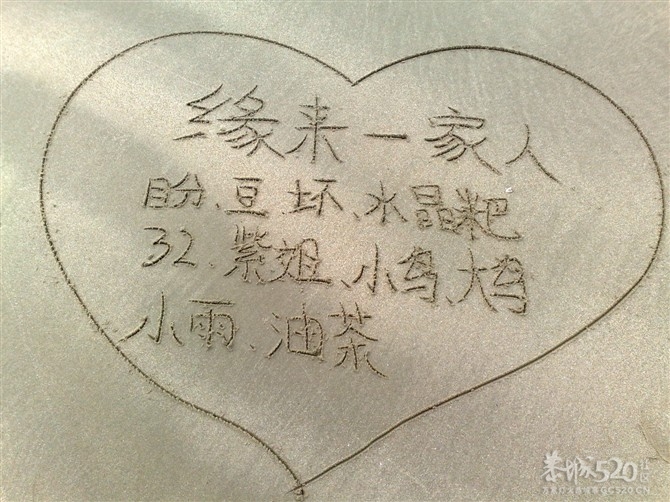 缘来一家人
盼、豆、坏、水晶粑
32、紫姐、小鸟、大鸟
小雨、油茶
恭城520社区
GC520.CN